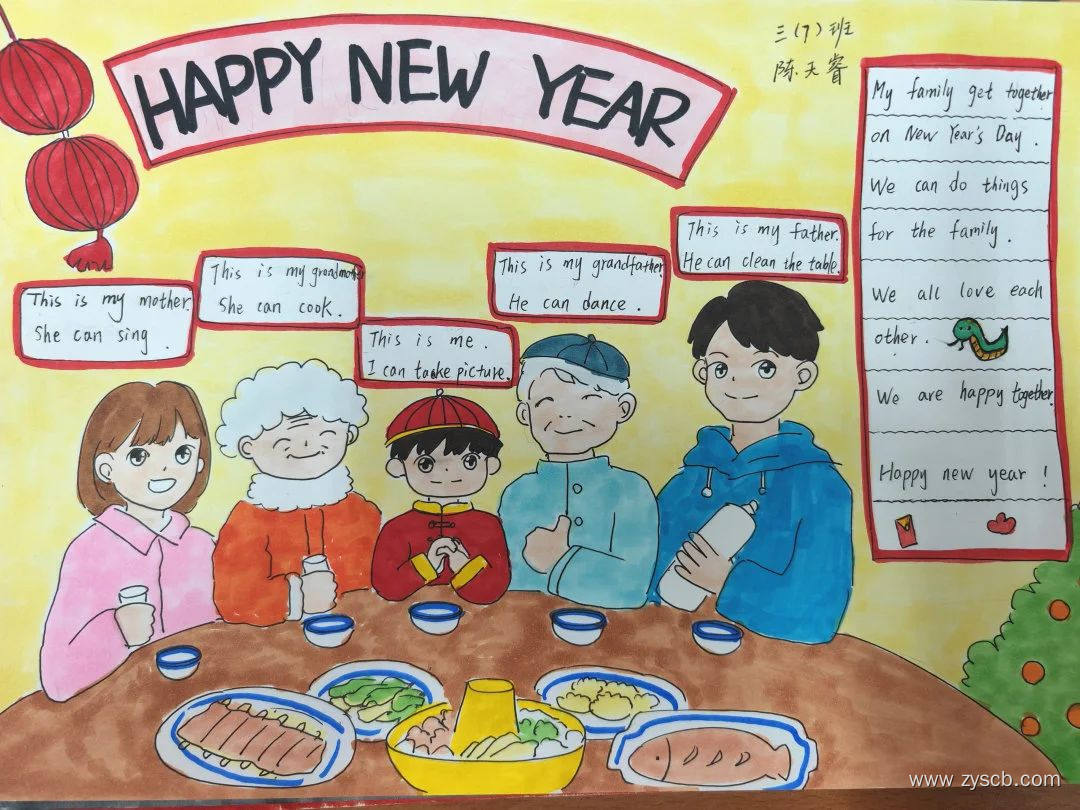 HAPPY NEW YEAR
三(7)班
陈天睿
My family get together
on New Year's Day .
We can do things
for the family .
We all love each
other .
We are happy together.
Happy new year !
This is my mother.
She can sing .
This is my grandmother
She can cook .
This is me .
I can take picture.
This is my grandfather
He can dance .
This is my father.
He can clean the table.
www.zyscb.com